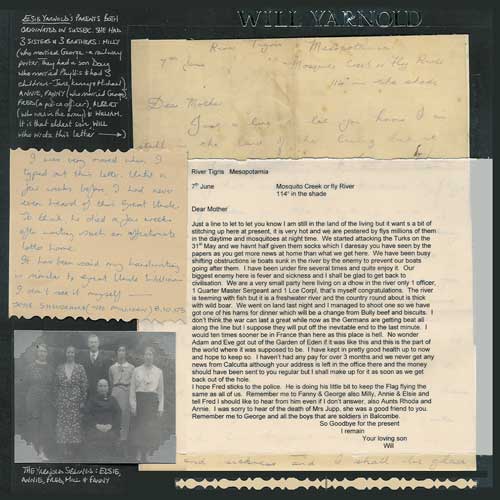 WILL YARNOLD
ELSIE YARNOLD: PARENTS BOTH
ORIGINATED IN SUSSEX. SHE HAD
3 SISTERS & 3 BROTHERS: MILLY
(who married George - a railway
porter. They had a son Doug
who married Phyllis & had 3
children - Jane, Kerry & Michael)
ANNIE, FANNY (who married George)
FRED (a police officer), ALBERT
(who was in the army) & WILLIAM.
It is that eldest son WILL
who wrote this letter
River Tigris Mesopotamia
7th June Mosquito Creek or Fly River
114° in the shade
Dear Mother
Just a line to let you know I am
still in the land of the living but it
I was very moved when I
typed out this letter. Until a
few weeks before, I had never
even heard of this Great Uncle.
To think he died a few weeks
after writing such an affectionate
letter home.
It has been said my handwriting
is similar to Great Uncle William
I don't see it myself
8.10.05
River Tigris Mesopotamia
7th June Mosquito Creek or fly River
114° in the shade
Dear Mother
Just a line to let to let you know I am still in the land of the living but want s a bit of
stitching up here at present, it is very hot and we are pestered by flys millions of them
in the daytime and mosquitoes at night time. We started attacking the Turks on the
31st May and we havnt haf given them socks which I daresay you have seen by the
papers as you get more news at home than what we get here. We have been busy
shifting obstructions ie boats sunk in the river by the enemy to prevent our boats
going after them. I have been under fire several times and quite enjoy it. Our
biggest enemy here is fever and sickness and I shall be glad to get back to
civilisation. We are a very small party here living on a dhow in the river only 1 officer,
1 Quarter Master Sergeant and 1 Lce Corpl, that's myself congratulations. The river
is teeming with fish but it is a freshwater river and the country round about is thick
with wild boar. We went on land last night and I managed to shoot one so we have
got one of his hams for dinner which will be a change from Bully beef and biscuits. I
don't think the war can last a great while now as the Germans are getting beat all
along the line but I suppose they will put off the inevitable end to the last minute. I
would ten times sooner be in France than here as this place is hell. No wonder
Adam and Eve got out of the Garden of Eden if it was like this and this is the part of
the world where it was supposed to be. I have kept in pretty good health up to now
and hope to keep so. I haven't had any pay for over 3 months and we never get any
news from Calcutta although your address is left in the office there and the money
should have been sent to you regular but I shall make up for it as soon as we get
back out of the hole.
I hope Fred sticks to the police. He is doing his little bit to keep the Flag flying the
same as all of us. Remember me to Fanny & George also Milly, Annie & Elsie and
tell Fred I should like to hear from him even if I don't answer, also Aunts Rhoda and
Annie. I was sorry to hear of the death of Mrs Jupp, she was a good friend to you.
Remember me to George and all the boys that are soldiers in Balcombe.
So Goodbye for the present
I remain
Your loving son
Will
and sickness and I shall be glad
THE YARNOLD SIBLINGS: ELSIE,
ANNIE, FRED, MILL & FANNY